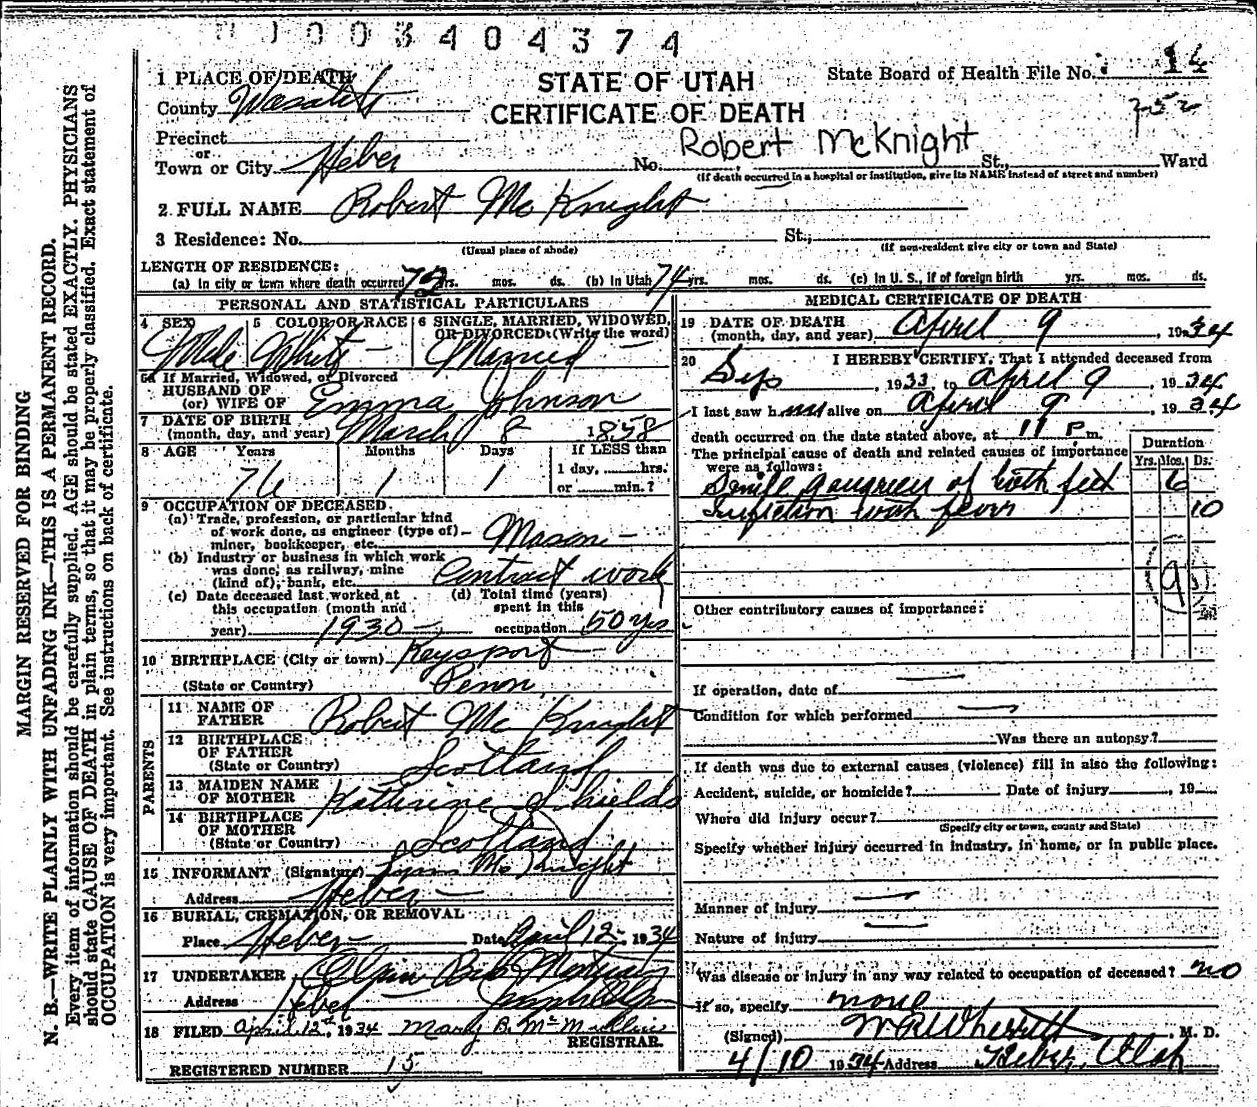 1003404374
1 PLACE OF DEATH
STATE OF UTAH
State Board of Health File No. 14
County Wasatch
CERTIFICATE OF DEATH
352
Precinct
or
Town or City Heber No. Robert McKnight St., Ward
(If death occurred in a hospital or institution, give its NAME instead of street and number)
2. FULL NAME Robert McKnight
3 Residence: No. St.,
(Usual place of abode) (If non-resident give city or town and State)
LENGTH OF RESIDENCE:
(a) In city or town where death occurred 72 yrs. mos. ds. (b) in Utah 74 yrs. mos. ds. (c) in U. S., if of foreign birth yrs. mos. ds.
PERSONAL AND STATISTICAL PARTICULARS
4 SEX 5 COLOR OR RACE 6 SINGLE, MARRIED, WIDOWED,
OR DIVORCED: (Write the word)
Male White Married
5a If Married, Widowed, or Divorced
HUSBAND OF
(or) WIFE OF Emma Johnson
7 DATE OF BIRTH
(month, day, and year) March 8 1858
8 AGE Years Months Days If LESS than
1 day, hrs.
76 1 1 or min.?
9 OCCUPATION OF DECEASED.
(a) Trade, profession, or particular kind
of work done, as engineer (type of)—
miner, bookkeeper, etc. Mason
(b) Industry or business in which work
was done, as railway, mine
(kind of), bank, etc. Contract work
(c) Date deceased last worked at (d) Total time (years)
this occupation (month and spent in this
year) 1930 occupation 50 yrs
10 BIRTHPLACE (City or town) Keysport
(State or Country) Penn.
PARENTS
11 NAME OF
FATHER Robert McKnight
12 BIRTHPLACE
OF FATHER
(State or Country) Scotland
13 MAIDEN NAME
OF MOTHER Katherine Shields
14 BIRTHPLACE
OF MOTHER
(State or Country) Scotland
15 INFORMANT (Signature) McKnight
Address Heber
16 BURIAL, CREMATION, OR REMOVAL
Place Heber Date April 12 1934
17 UNDERTAKER Olpin Bros Mortuary
Address Heber
18 FILED April 12th, 1934 Mary B. McMullin
REGISTRAR.
REGISTERED NUMBER 15
MEDICAL CERTIFICATE OF DEATH
19 DATE OF DEATH
(month, day, and year) April 9 1934
20 I HEREBY CERTIFY, That I attended deceased from
Sep , 1933, to April 9, 1934
I last saw him alive on April 9, 1934
death occurred on the date stated above, at 11 P. m.
The principal cause of death and related causes of importance
were as follows:
Duration
Yrs. Mos. Ds.
Senile gangreen of both feet 6
Infection with fever 10
Other contributory causes of importance:
If operation, date of
Condition for which performed
Was there an autopsy?
If death was due to external causes (violence) fill in also the following:
Accident, suicide, or homicide? Date of injury , 19
Where did injury occur?
(Specify city or town, county and State)
Specify whether injury occurred in industry, in home, or in public place.
Manner of injury
Nature of injury
Was disease or injury in any way related to occupation of deceased? no
If so, specify none
(Signed) W R Wherritt, M. D.
4/10 1934 Address Heber, Utah
MARGIN RESERVED FOR BINDING
N. B.—WRITE PLAINLY WITH UNFADING INK—THIS IS A PERMANENT RECORD.
Every item of information should be carefully supplied. AGE should be stated EXACTLY. PHYSICIANS
should state CAUSE OF DEATH in plain terms, so that it may be properly classified. Exact statement of
OCCUPATION is very important. See instructions on back of certificate.